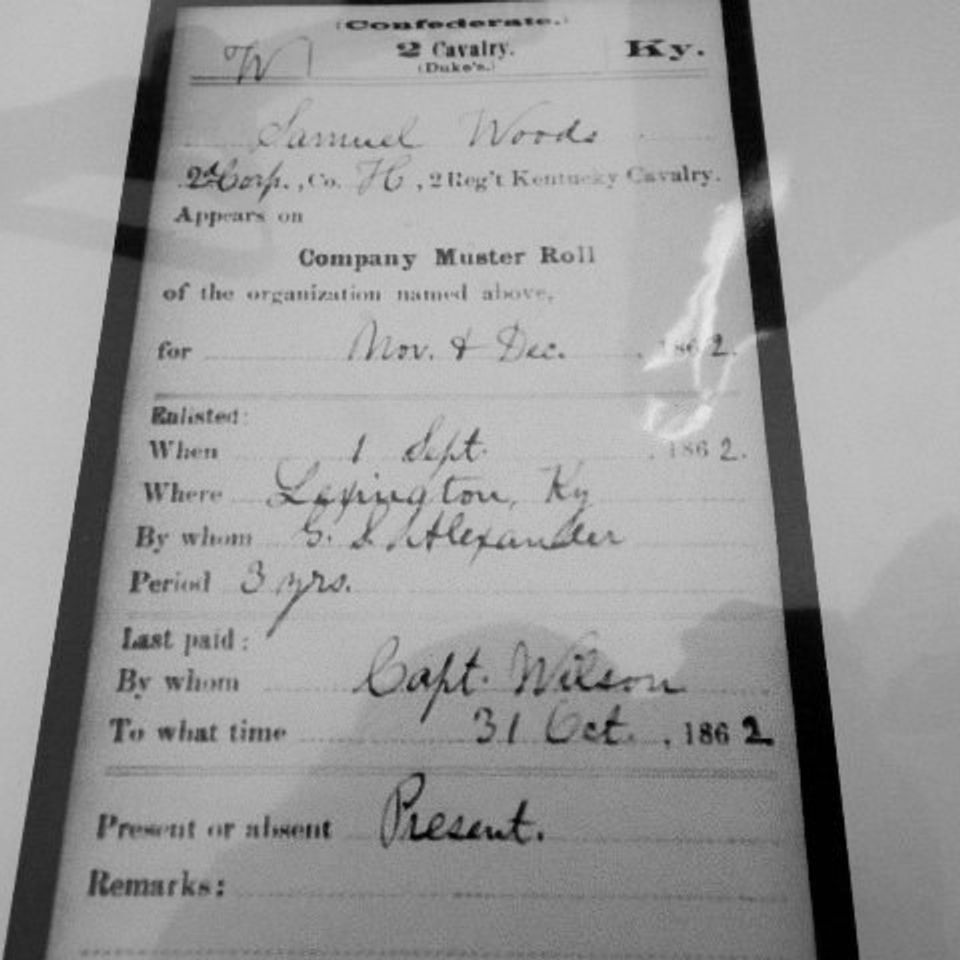 (Confederate.)
W 2 Cavalry. Ky.
(Duke's.)
Samuel Woods
2d Corp., Co. H, 2 Reg't Kentucky Cavalry.
Appears on
Company Muster Roll
of the organization named above,
for Nov. & Dec. , 1862.
Enlisted:
When 1 Sept. , 1862.
Where Lexington, Ky
By whom G. S. Alexander
Period 3 yrs.
Last paid:
By whom Capt. Wilson
To what time 31 Oct. , 1862
Present or absent Present.
Remarks: